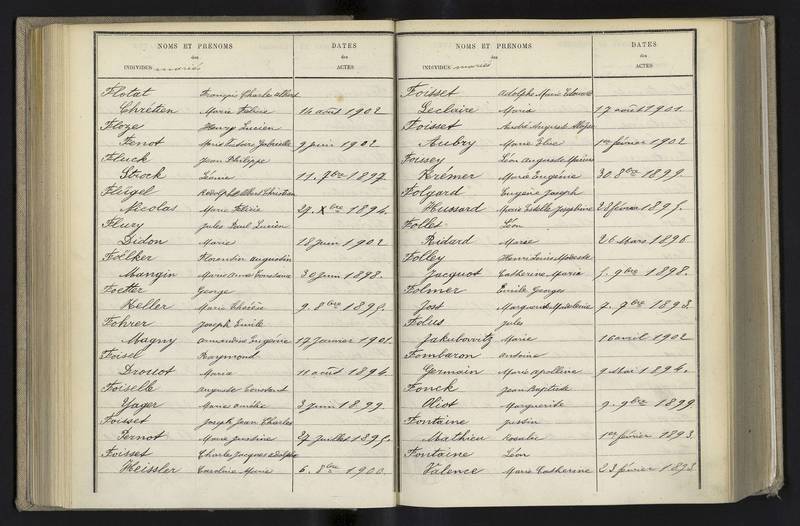 NOMS ET PRÉNOMS
des
INDIVIDUS mariés
DATES
des
ACTES
Flotat François Charles Albert
Chrétien Marie 14 août 1902
Floze Henry Lucien
Fenot Gabrielle 9 juin 1902
Fluck Jean Philippe
Strock 11. 7bre 1897
Flügel Rodolphe Albert Christian
Nicolas Marie 29. Xbre 1894.
Flury Jules Paul Lucien
Didon Marie 18 juin 1902
Foëlker Florentin Augustin
Mangin Marie Anne Constance 30 juin 1898.
Foetter George
Keller Marie Thérèse 9. 8bre 1895.
Fohrer Joseph Emile
Magny Amandine Eugénie 17 janvier 1901.
Foisel Raymond
Drouot Maria 11 août 1894
Foiselle Auguste Constant
Yager Marie Amélie 3 juin 1899.
Foisset Joseph Jean Charles
Pernot Marie Justine 27 juillet 1895.
Foisset Charles Jacques Adolphe
Heissler Caroline Marie 6. 8bre 1900.
NOMS ET PRÉNOMS
des
INDIVIDUS mariés
DATES
des
ACTES
Foisset Adolphe Marie Edouard
Leclaire Maria 17 août 1901.
Foisset André Auguste
Aubry Marie Elise 1er février 1902
Foissey Léon Auguste
Krémer Marie Eugénie 30. 8bre 1899.
Folyard Eugène Joseph
Hussard Marie Estelle Joséphine 28 février 1895.
Follet Léon
Ridard Marie 26 Mars 1896
Folley Henri Louis Modeste
Jacquot Catherine Maria 5. 9bre 1898.
Folmer Emile Georges
Jost Marguerite Madeleine 9bre 1893.
Folus Jules
Jakubovvitz Marie 16 avril 1902
Fombaron Antoine
Germain Marie Apolline 9 Mai 1894.
Fonck Jean Baptiste
Oliot Marguerite 9. 9bre 1899
Fontaine Justin
Mathieu Rosalie 1er février 1893.
Fontaine Léon
Valence Marie Catherine 23 février 1893.